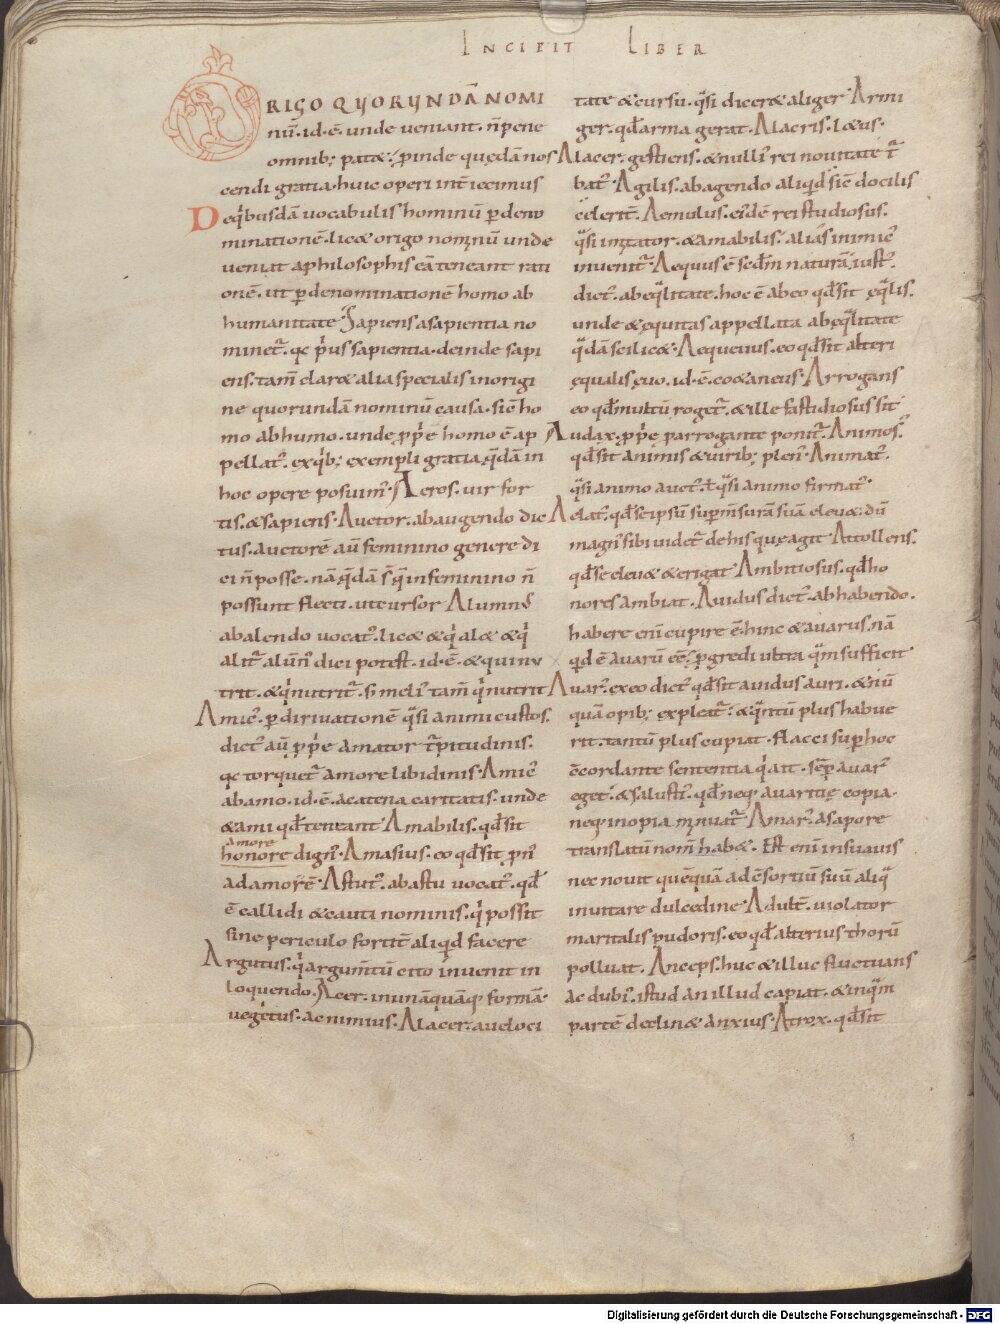 INCIPIT LIBER
ORIGO QUORUNDĀ NOMI
nū. id. ē. unde ueniant. n̄ pene
omnib; pat&. Proinde quędā nos
cendi gratia. huic operi int̄iecimus
De q'busdā uocabulis hominū
minationē. lic& origo nominū unde
ueniat a philosophis eā teneant rati
onē. ut p̱ denominationē homo ab
humanitate. Sapiens a sapientia no
minet᷒. qc p'us sapientia. deinde sapi
ens. tam̄ clar& alia specialis in origi
ne quorundā nominū causa. sic̄ ho
mo ab humo. unde homo ē ap
pellat᷒. ex q'b; exempli gratia quędā in
hoc opere posuim᷒. Aeros. uir for
tis. & sapiens. Auctor. ab augendo dic
tus. auctorē aū feminino genere di
ci n̄ posse. nā quędā s̄ quę in feminino n̄
possunt flecti. ut cursor. Alumn᷒
ab alendo uocat᷒. lic& & q' al& & q'
alit᷒ alūn᷒ dici potest. id. ē. & qui nu
trit. & q' nutrit᷒. s; meli᷒ tam̄ q' nutrit
Amic᷒. p̱ dirivationē q̄si animi custos.
dict᷒ aū p̱p'e. Amator t᷒pitudinis.
qc torquet᷒ amore libidinis. Amic᷒
ab amo. id. ē. a catena caritatis. unde
& ami qd̄ teneant. Amabilis. qd̄ sit
amore
honore dign᷒. Amasius. eo qd̄ sit pn᷒
ad amorē. Astut᷒. ab astu uocat᷒. qd̄
ē callidi & cauti nominis. q' possit
sine periculo fortit̄ aliq'd facere
Argutus. q' argum̄tū cito inuenit in
loquendo. Acer. in unāquāq; formā.
uegetus. ac nimius. Alacer. a ueloci
tate & cursu. q̄si dicer& aliger. Armi
ger. qd̄ arma gerat. Alacris. l&us.
Alacer. gestiens. & nulli᷒ rei nouitate t᷒
bat᷒. Agilis. ab agendo aliq'd sic̄ docilis
celerit̄. Aemulus. ei᷒dē rei studiosus.
q̄si imitator. & amabilis. alias inimic᷒
inuenit᷒. Aequus ē sc̄dm naturā iust᷒
dict᷒. ab eq̄litate. hoc ē ab eo qd̄ sit ęq̄lis.
unde & ęquitas appellata ab ęq̄litate
q̄dā scilic&. Aequeuus. eo qd̄ sit alteri
ęqualis ęuo. id. ē. co&aneus. Arrogans
eo qd̄ multū roget᷒. & ille fastidiosus sit
Audax. p̱p'ę p̱ arrogante ponit᷒. Animos᷒.
qd̄ sit animis & uirib; plen᷒. Animat᷒.
q̄si animo auct᷒. ł q̄si animo firmat᷒.
Elat᷒. qd̄ se ipsū sup̱ m̄surā suā eleu&. dū
magn᷒ sibi uidet᷒ de his quę agit. Attollens.
qd̄ se eleu& & erigat. Ambitiosus. qd̄ ho
nores ambiat. Auidus dict᷒. ab habendo.
habere eni cupire ē. hinc & auarus. nā
q'd ē auarū eē. p̱gredi ultra q̄m sufficit
Auar᷒. ex eo dict᷒ qd̄ sit auidus auri. & nū
quā opib; expleat᷒. & q̄ntū plus habue
rit. tantū plus cupiat. Flacci sup̱ hoc
ēcordante sententia q' ait. sēp̱ auar᷒
eget. & salusti᷒. qd̄ neq; auaritię copia.
neq; inopia minuat᷒. Amar᷒. a sapore
translatū nom̄ hab&. Est eni insuauis
nec nouit quequā ad ēsortiū suū aliq̄
inuitare dulcedine. Adult̄. uiolator
maritalis pudoris. eo qd̄ alterius thorū
polluat. Anceps. huc & illuc fluctuans
ac dubi᷒. istud an illud capiat. & in q̄m
partē declin& anxius. Atrox. qd̄ sit
Digitalisierung gefördert durch die Deutsche Forschungsgemeinschaft - DFG